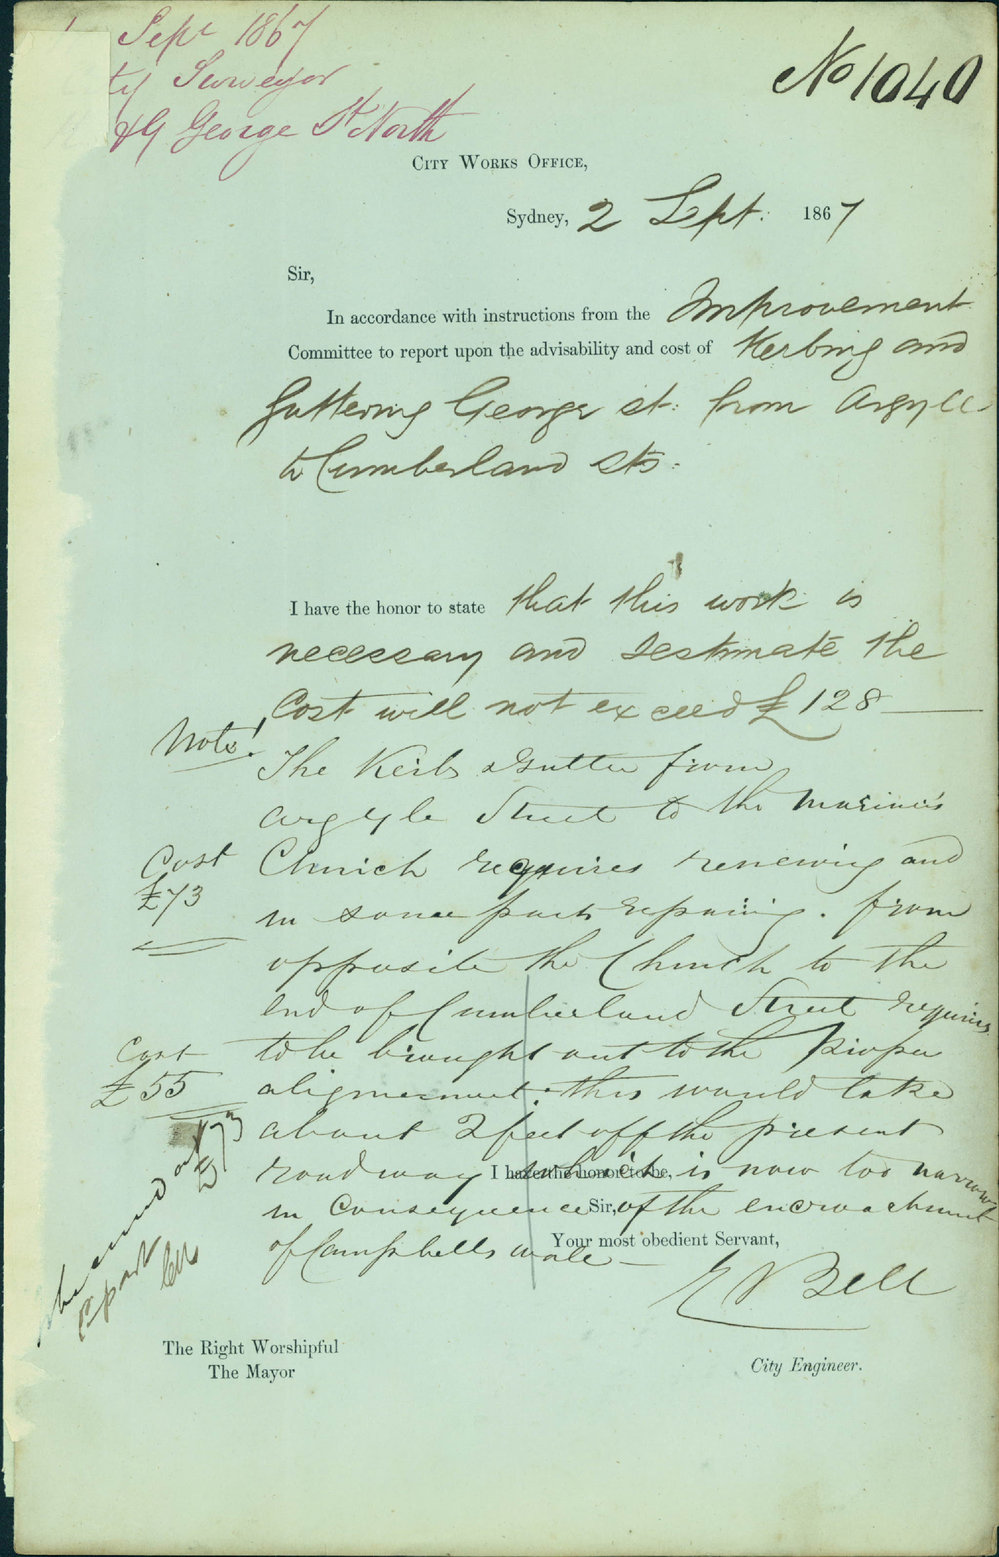 Sept 1867
ty Surveyor
K & G George St North
No 1040
City Works Office,
Sydney, 2 Sept. 1867
Sir,
In accordance with instructions from the Improvement
Committee to report upon the advisability and cost of Kerbing and
Guttering George st. from Argyle
to Cumberland Sts.
I have the honor to state that this work is
necessary and I estimate the
Cost will not exceed £128
Note!
The Kerb & Gutter from
Argyle Street to the Mariners
Cost
£73
Church requires renewing and
in some parts repairing. from
opposite the Church to the
end of Cumberland Street requires
Cost
£55
to be brought out to the proper
alignment. this would take
about 2 feet off the present
roadway which is now too narrow
in consequence of the encroachment
of Campbells wall
£73
report
I have the honor to be,
Sir,
Your most obedient Servant,
E Bell
The Right Worshipful
The Mayor
City Engineer.